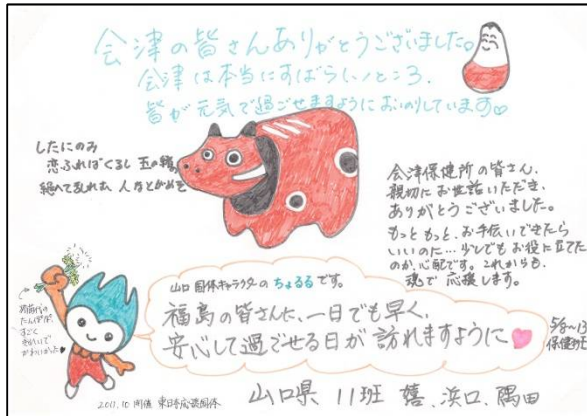 会津の皆さんありがとうございました。
会津は本当にすばらしいところ、
皆が元気で過ごせますようにおいのりしています♡
したにのみ
恋ふればくるし 玉の緒の
絶へて乱れな 人なとがめそ
会津保健所の皆さん、
親切にお世話いただき、
ありがとうございました。
もっともっと、お手伝いできたら
いいのに…少しでもお役に立てた
のか、心配です。これからも、
魂で応援します。
山口国体キャラクターのちょるるです。
福島の皆さんに、一日でも早く、
安心して過ごせる日が訪れますように
5/8~13
保健師班
たんぽぽが、
すごく
きれいで
かわいかったよ
2011.10 開催 東日本応援国体
山口県 11班 嬉、浜口、隅田